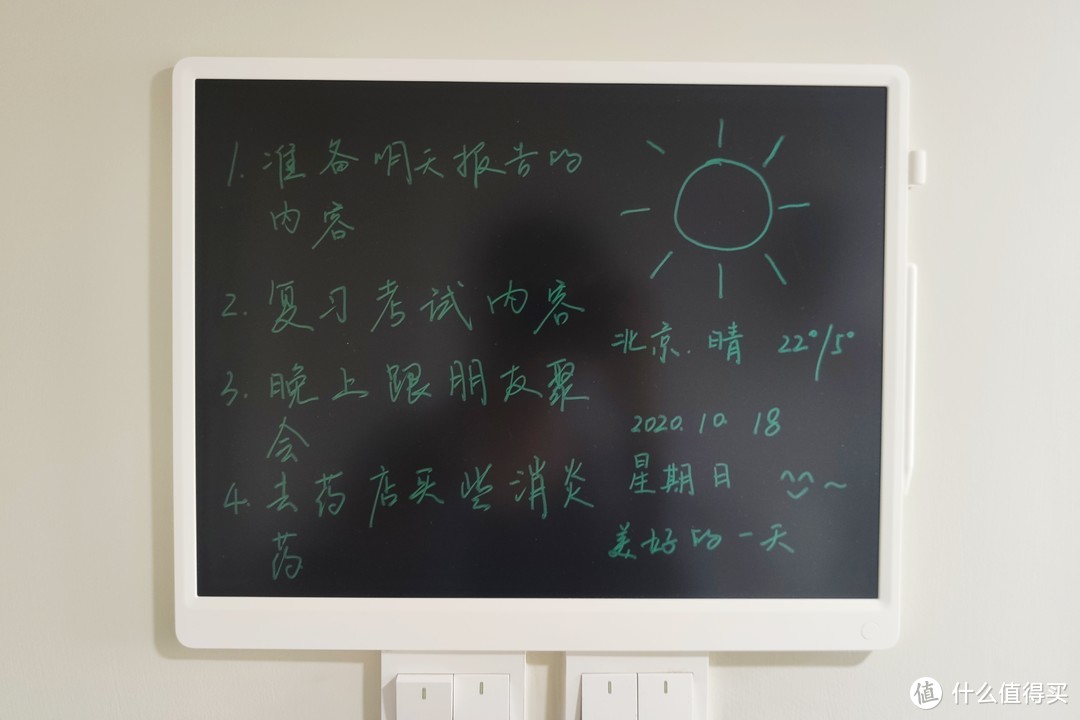 1. 准备明天报告的
内容
2. 复习考试内容
3. 晚上跟朋友聚
会
4. 去药店买些消炎
药
北京.晴 22°/5°
2020.10.18
星期日
美好的一天
值 什么值得买